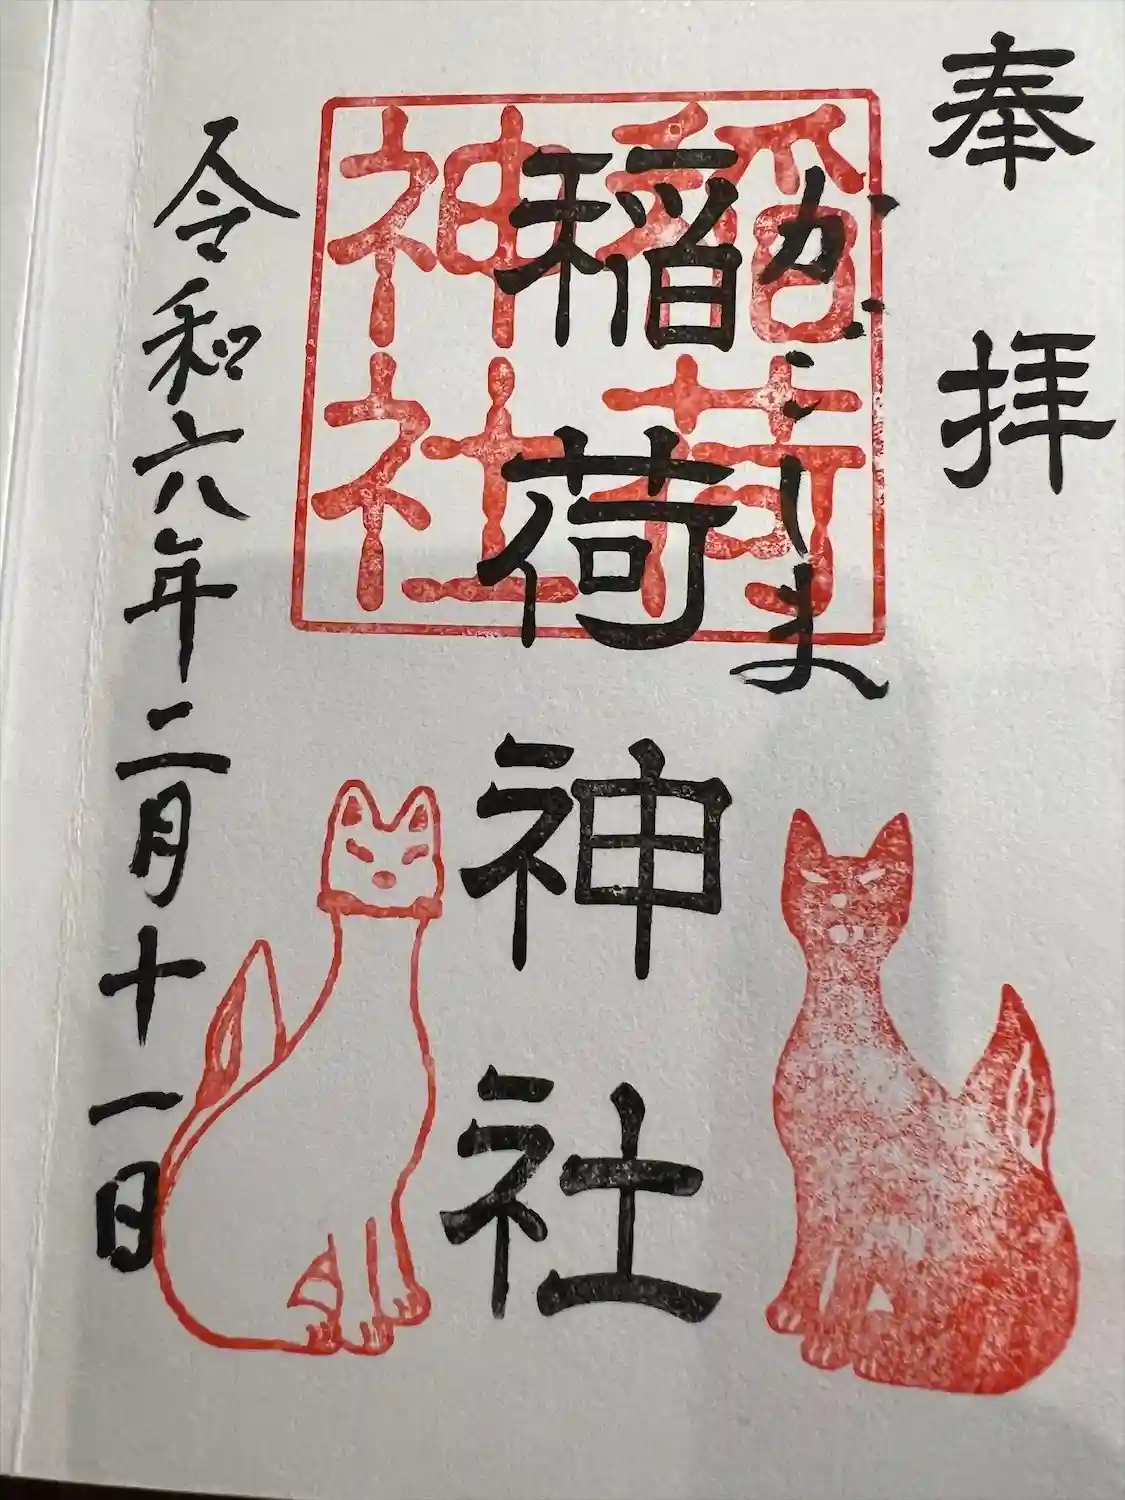 奉拝
かごしま
稲荷神社
稲荷
神社
令和六年二月十一日